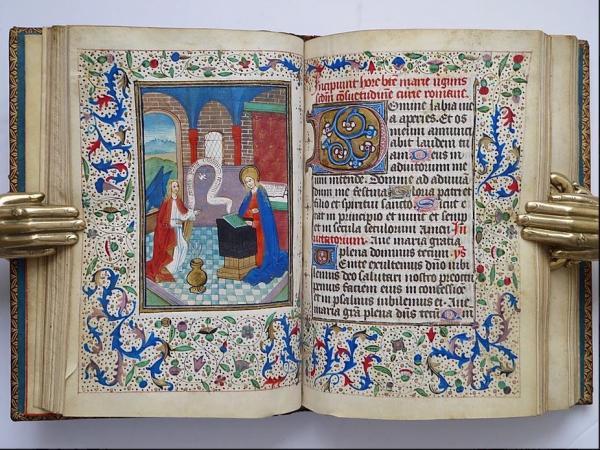 Incipiunt hore bte marie v̾ginis
scdm cōsuetudinē curie romane.
Domine labia me
a aperies. Et os
meum annunci
abit laudem tu
am Deus in
adiutorium me
um intende. Domine ad adiuuā
dum me festina Gloria patri et
filio et spiritui sancto Sicut e
rat in principio et nunc et semp
et in secula seculorum Amen In
uitatorium. Aue maria gratia
plena dominus tecum. ps
Venite exultemus dño iubi
lemus deo salutari nostro preoccu
pemus faciem eius in confessioe
et in psalmis iubilemus ei Aue
maria grā plena dñs tecū